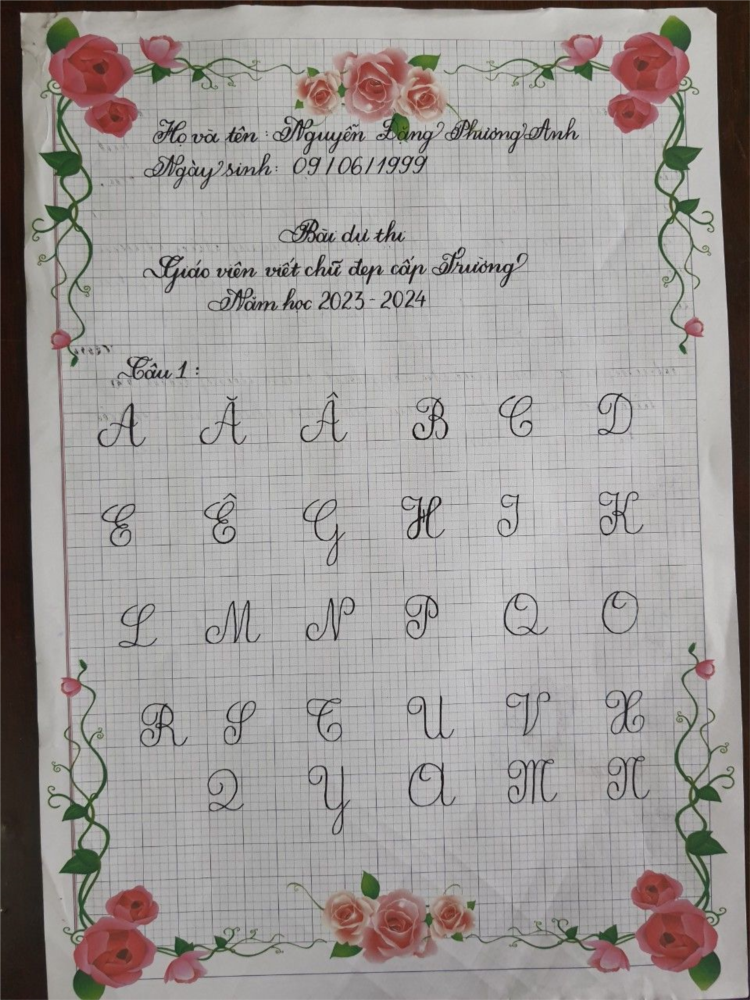 Họ và tên : Nguyễn Đặng Phương Anh
Ngày sinh : 09/06/1999
Bài dự thi
Giáo viên viết chữ đẹp cấp Trường
Năm học 2023 - 2024
Câu 1 :
A Ă Â B C D
E Ê G H I K
L M N P Q O
R S T U V X
Q Y A M N